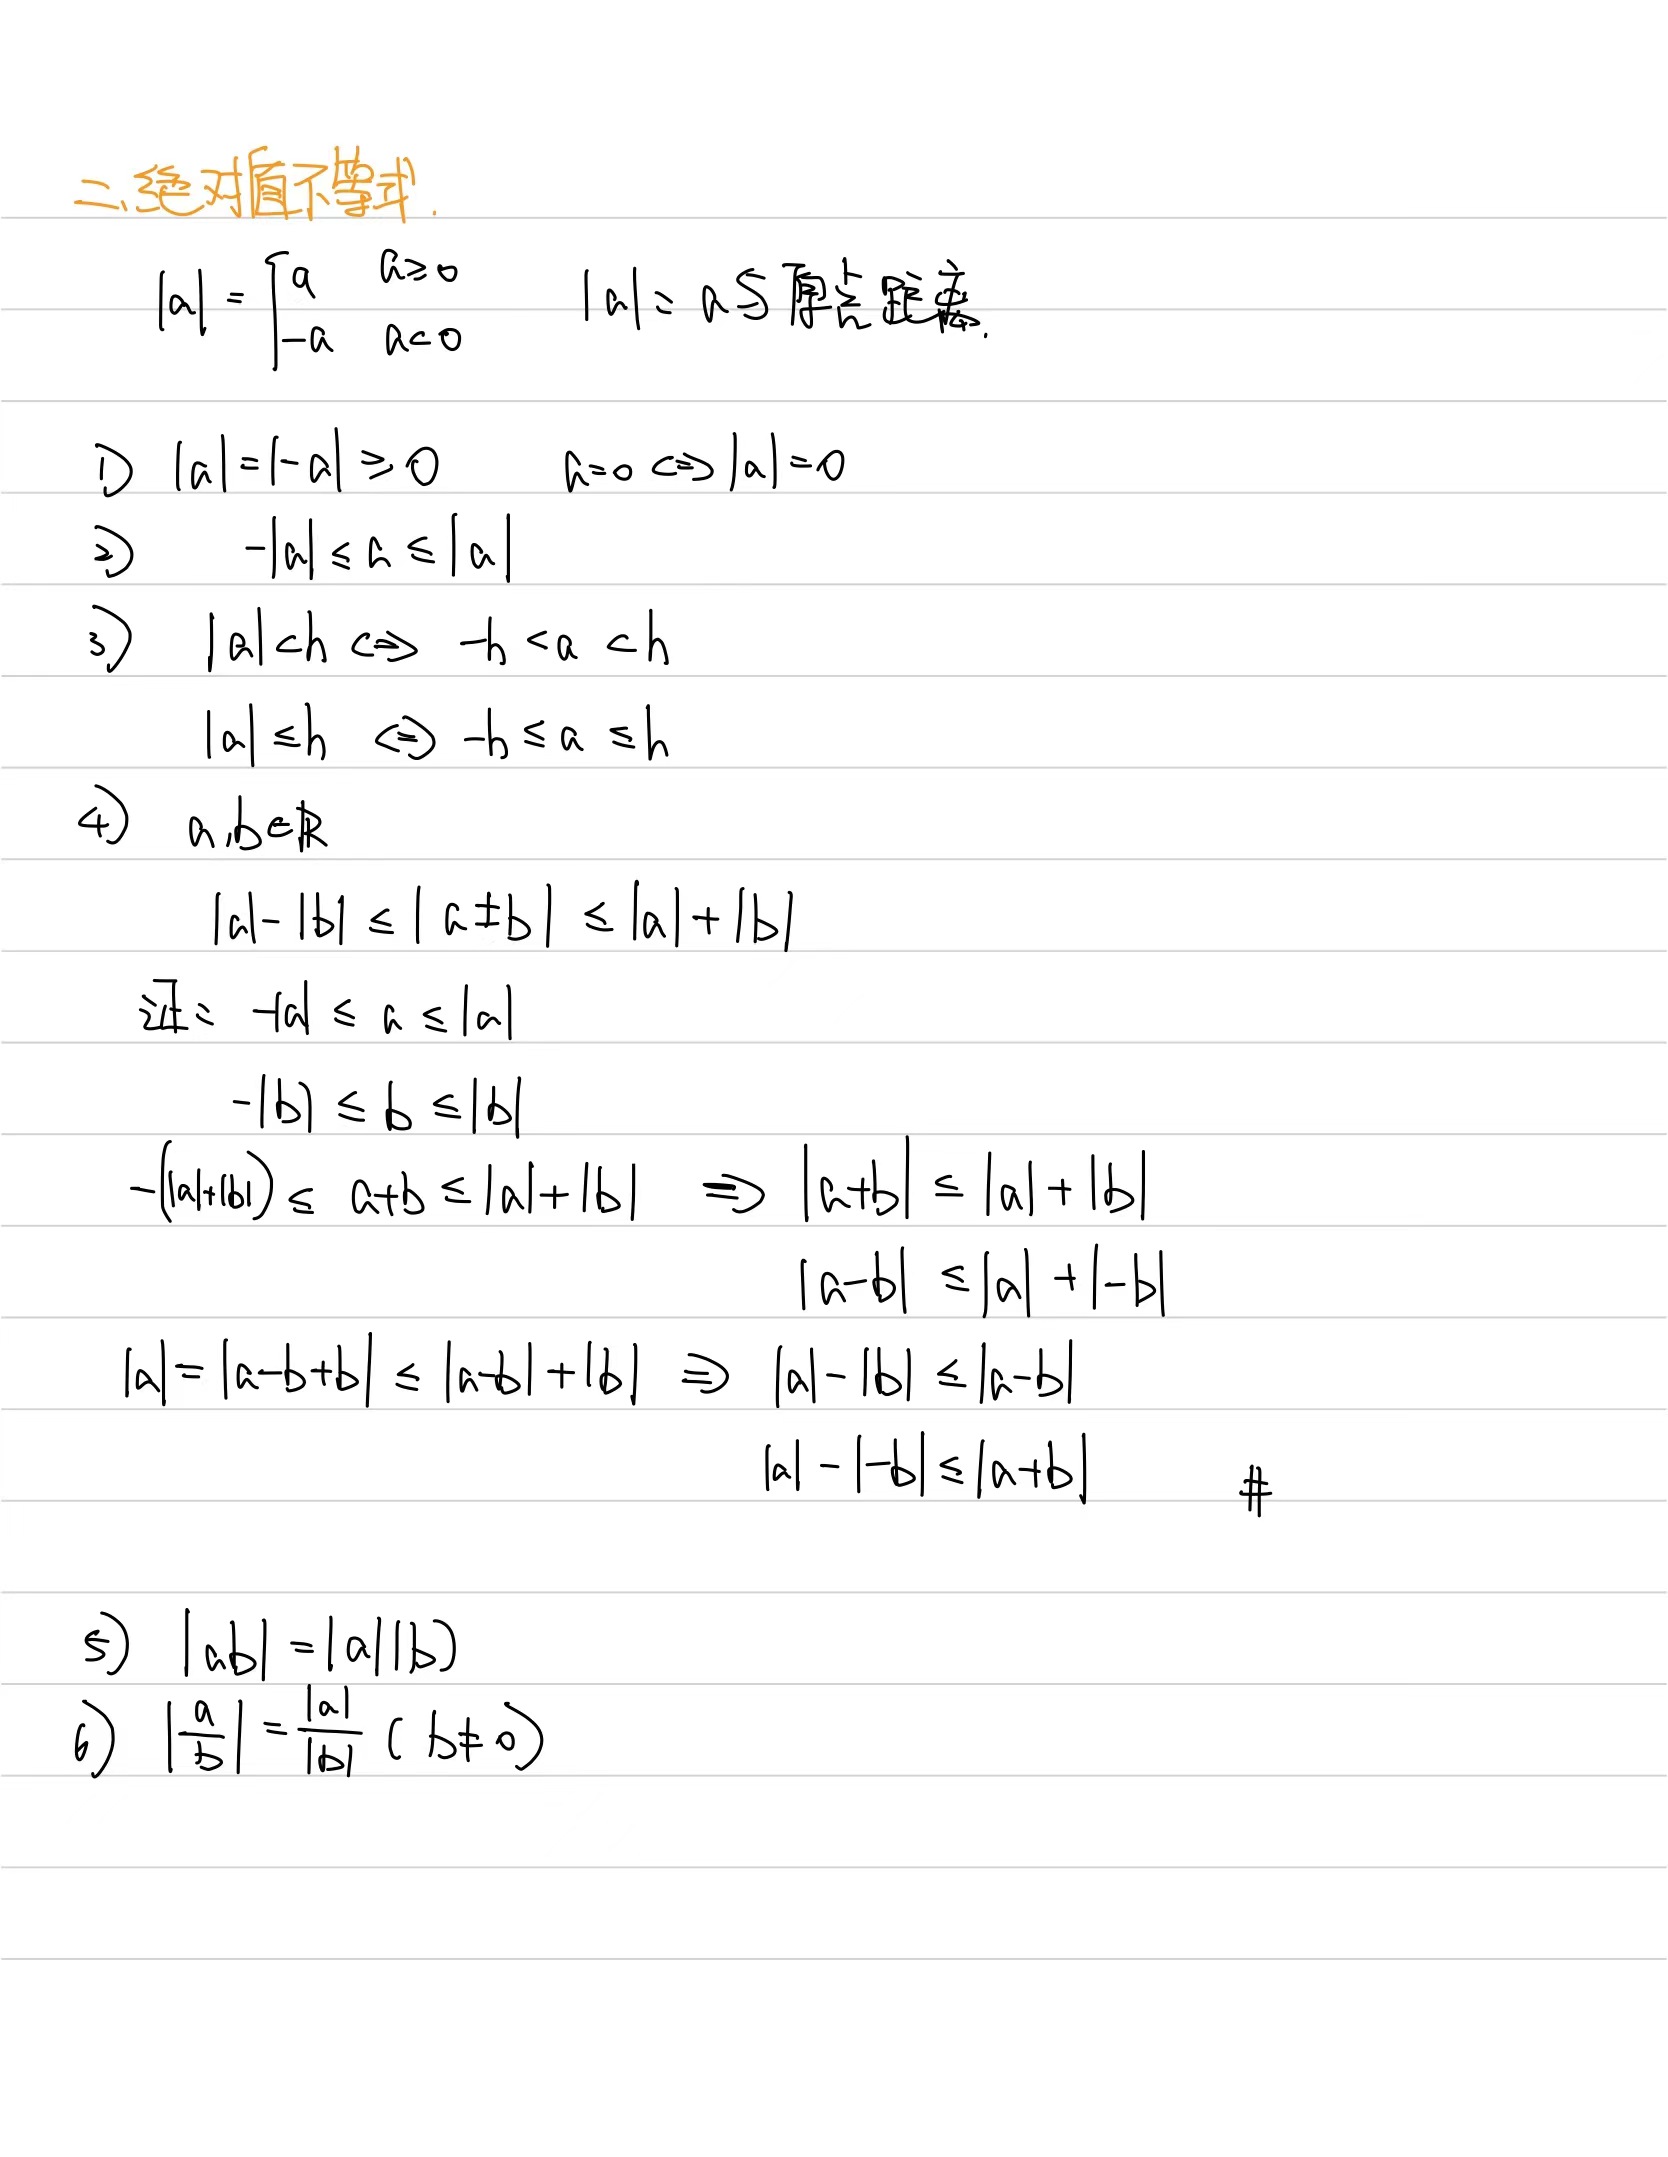 二、绝对值不等式.
|a| = { a a≥0 -a a<0 |a| = a与原点距离.
1) |a|=|-a|≥0 a=0 ⇔ |a|=0
2) -|a| ≤ a ≤ |a|
3) |a|<h ⇔ -h < a < h
|a| ≤ h ⇔ -h ≤ a ≤ h
4) a,b∈ℝ
|a| - |b| ≤ |a±b| ≤ |a| + |b|
证: -|a| ≤ a ≤ |a|
-|b| ≤ b ≤ |b|
-(|a|+|b|) ≤ a+b ≤ |a|+|b| ⇒ |a+b| ≤ |a|+|b|
|a-b| ≤ |a| + |-b|
|a| = |a-b+b| ≤ |a-b| + |b| ⇒ |a| - |b| ≤ |a-b|
|a| - |-b| ≤ |a+b| #
5) |ab| = |a||b|
6) |a/b| = |a|/|b| (b≠0)